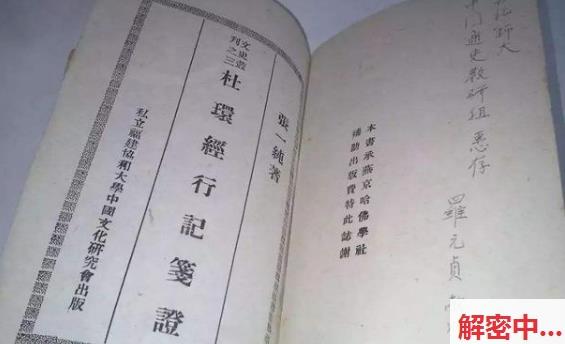 师大
通史教研组 惠存
羅元貞
本書承燕京哈佛學社
補助出版費特此誌謝
張一純著
文史叢
刊之三
杜環經行記箋證
私立福建協和大學中國文化研究會出版
解密中...